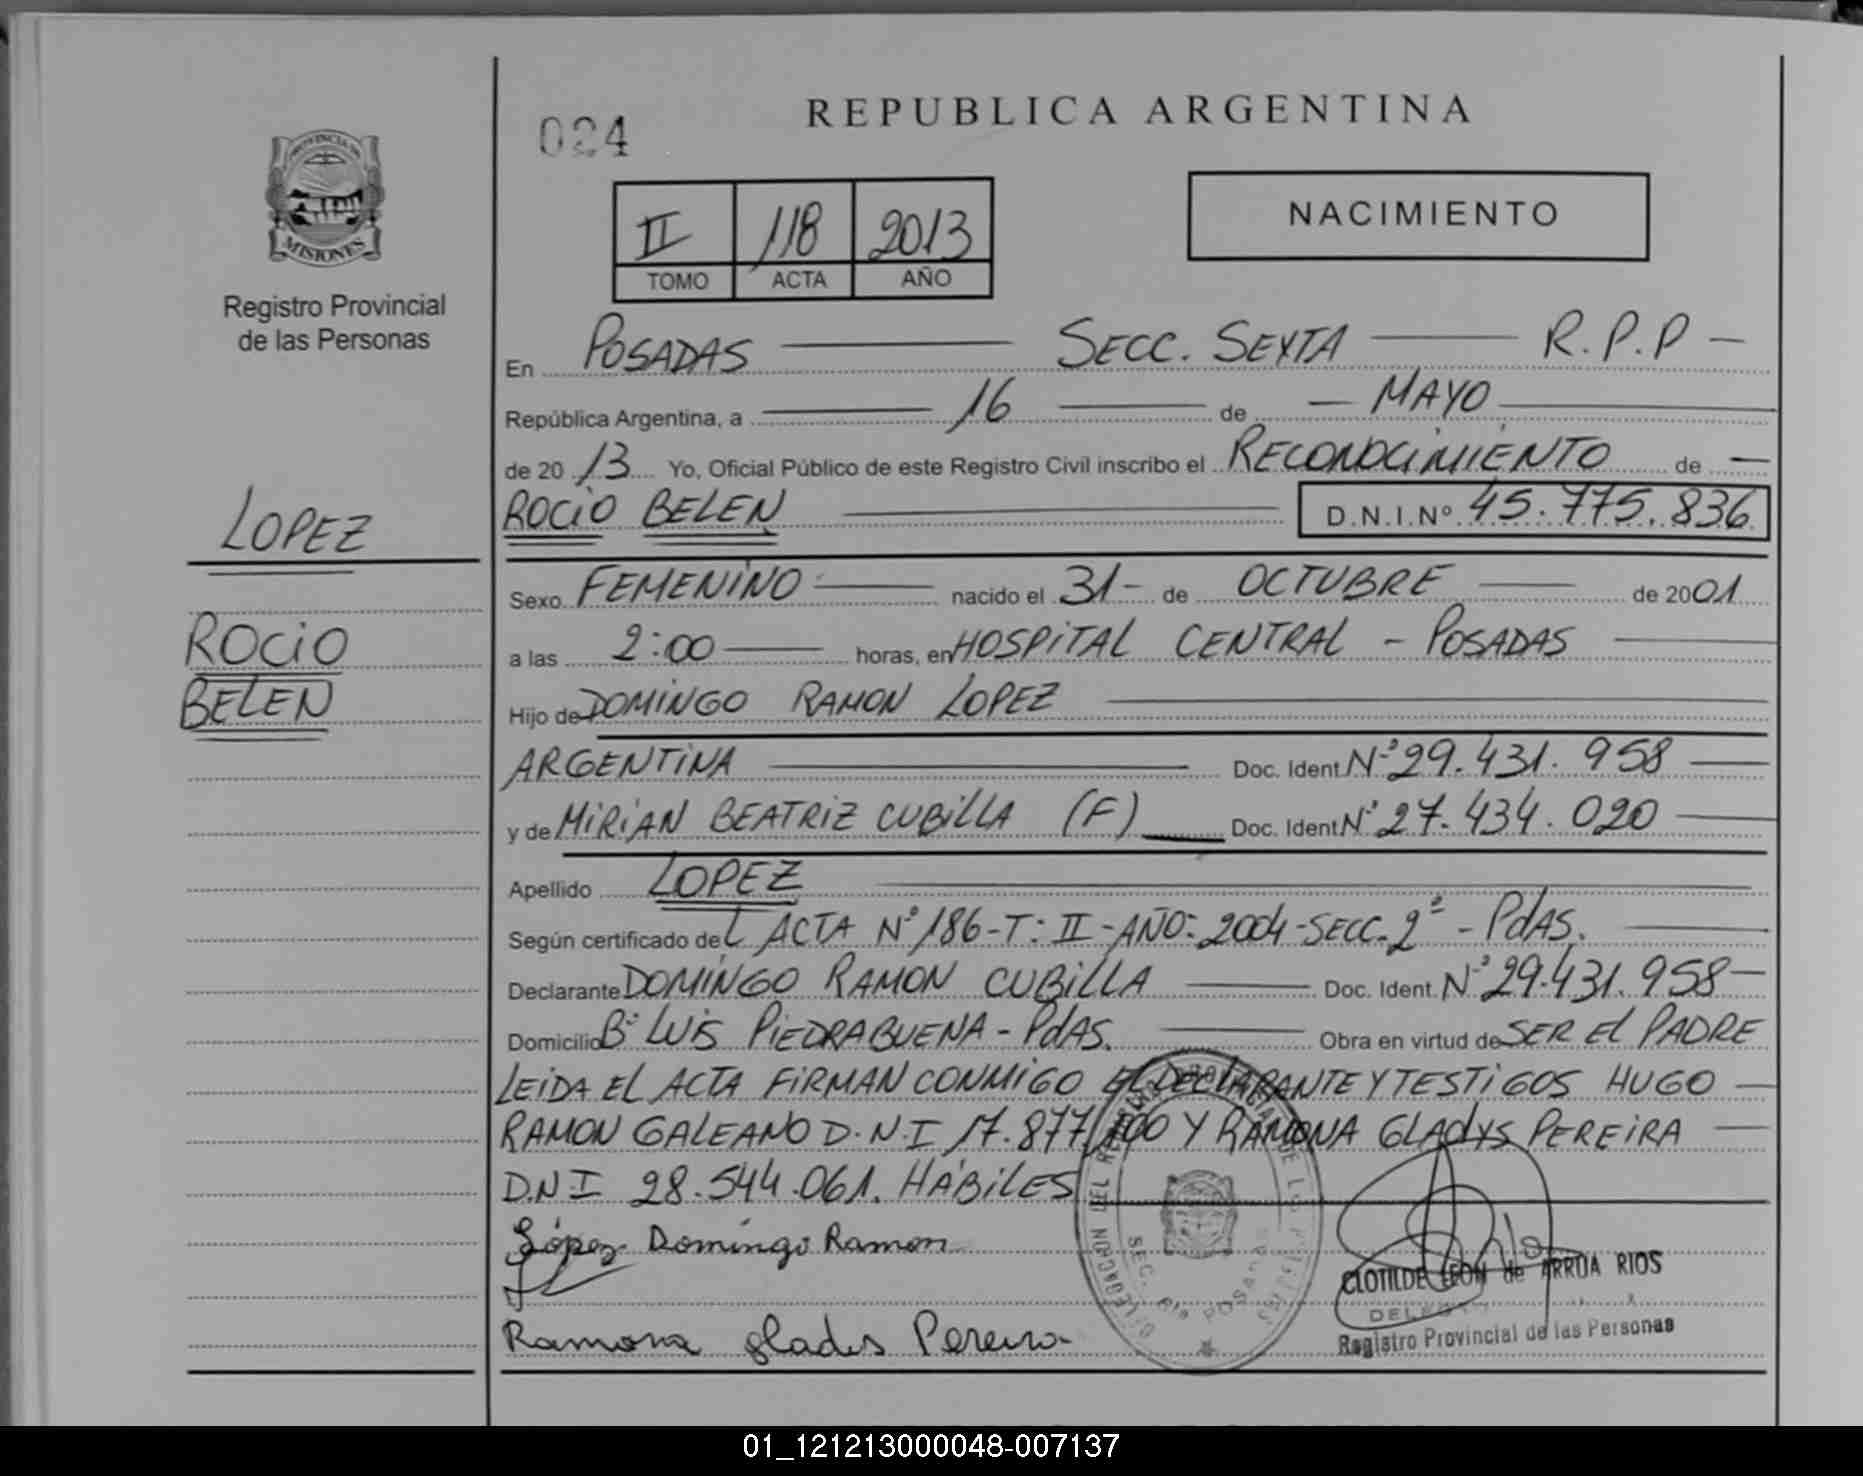 024
REPUBLICA ARGENTINA
PROVINCIA DE
MISIONES
Registro Provincial
de las Personas
II 118 2013
TOMO ACTA AÑO
NACIMIENTO
En POSADAS SECC. SEXTA R.P.P -
República Argentina, a 16 de - MAYO
de 20 13 Yo, Oficial Público de este Registro Civil inscribo el RECONOCIMIENTO de -
ROCIO BELEN D.N.I.Nº 45.775.836
LOPEZ
ROCIO
BELEN
Sexo FEMENINO nacido el 31- de OCTUBRE de 2001
a las 2:00 horas, en HOSPITAL CENTRAL - POSADAS
Hijo de DOMINGO RAMON LOPEZ
ARGENTINA Doc. Ident. Nº 29.431.958
y de MIRIAN BEATRIZ CUBILLA (F) Doc. Ident. Nº 27.434.020
Apellido LOPEZ
Según certificado del ACTA Nº 186-T: II-AÑO: 2004-SECC. 2ª - PdAS.
Declarante DOMINGO RAMON CUBILLA Doc. Ident. Nº 29.431.958
Domicilio Bº LUIS PIEDRABUENA - PdAS. Obra en virtud de SER EL PADRE
LEIDA EL ACTA FIRMAN CONMIGO EL DECLARANTE Y TESTIGOS HUGO
RAMON GALEANO D.N.I 17.877.100 Y RAMONA GLADYS PEREIRA
D.N.I 28.544.061. HÁBILES
López Domingo Ramon
Ramona glades Pereira
DELEGACION DEL REGISTRO PROVINCIAL DE LAS PERSONAS
SEC. 6ta POSADAS
CLOTILDE LEON de ARRUA RIOS
Registro Provincial de las Personas
01_121213000048-007137